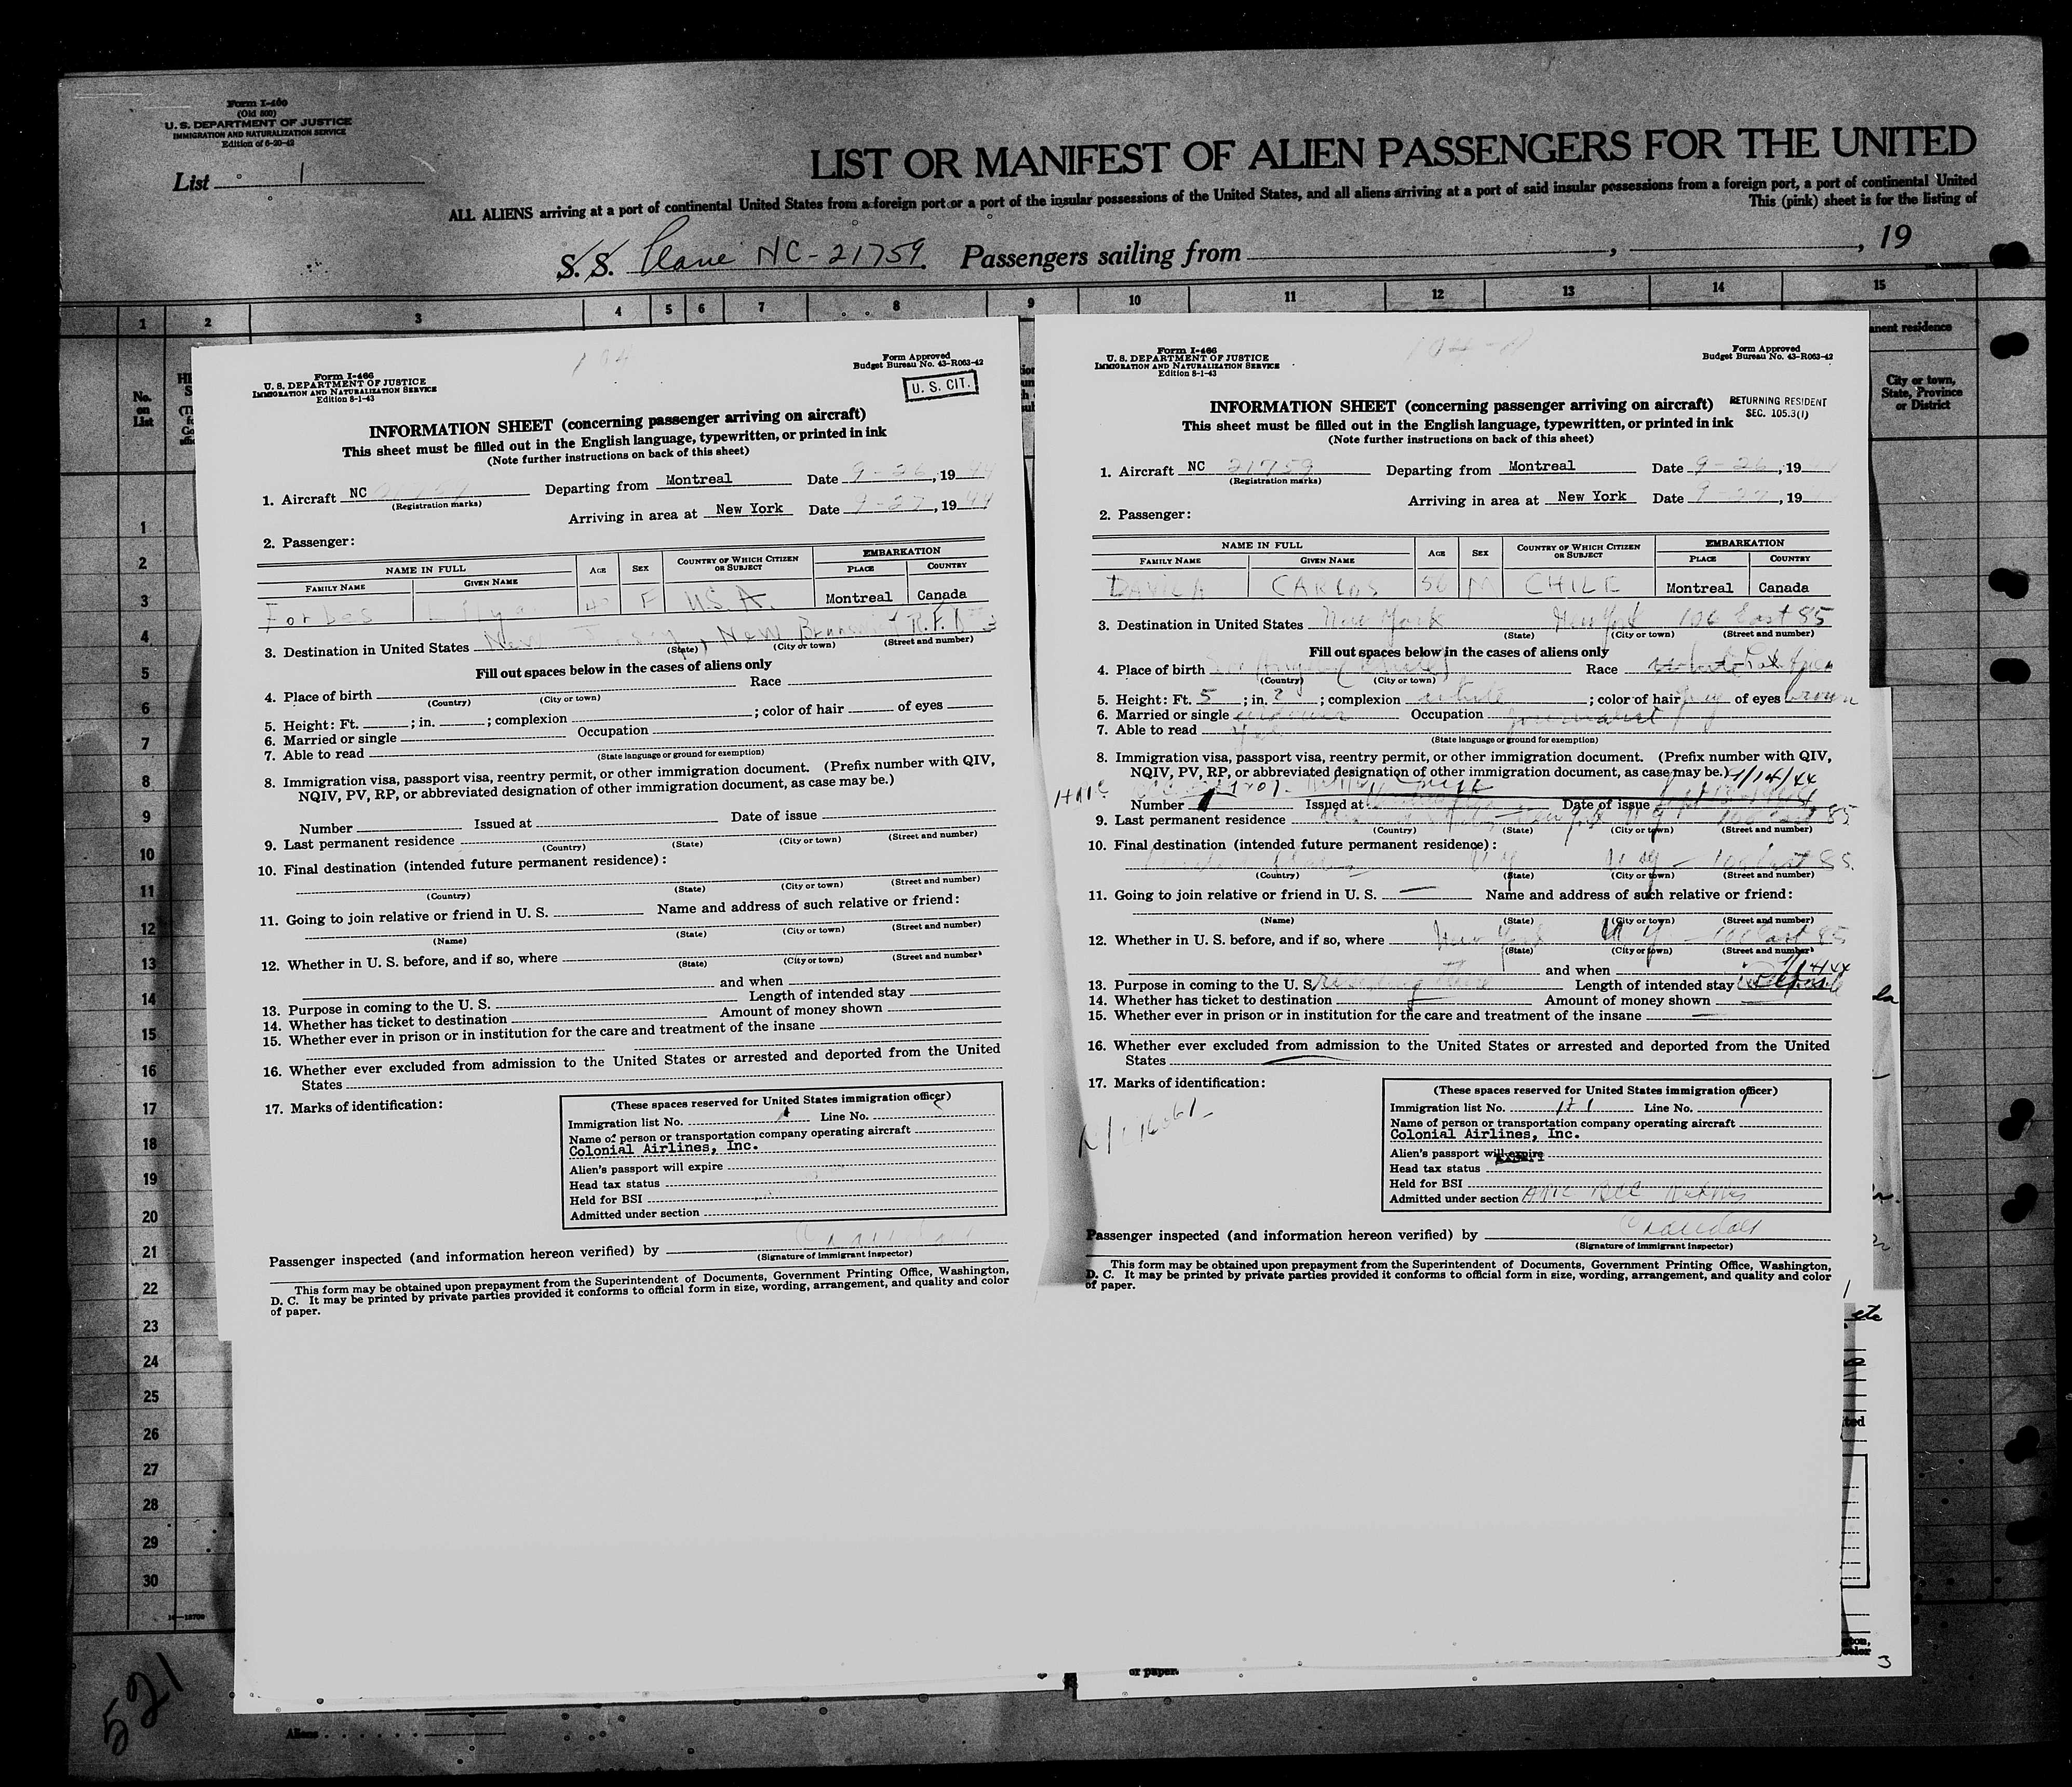 Form I-460
(Old 500)
U. S. DEPARTMENT OF JUSTICE
IMMIGRATION AND NATURALIZATION SERVICE
Edition of 6-20-42
List 1
LIST OR MANIFEST OF ALIEN PASSENGERS FOR THE UNITED
ALL ALIENS arriving at a port of continental United States from a foreign port or a port of the insular possessions of the United States, and all aliens arriving at a port of said insular possessions from a foreign port, a port of continental United
This (pink) sheet is for the listing of
S. S. Plane NC-21759 Passengers sailing from , , 19
1 2 3 4 5 6 7 8 9 10 11 12 13 14 15
No. on List
anent residence
City or town, State, Province or District
1
2
3
4
5
6
7
8
9
10
11
12
13
14
15
16
17
18
19
20
21
22
23
24
25
26
27
28
29
30
Form I-466
U. S. DEPARTMENT OF JUSTICE
IMMIGRATION AND NATURALIZATION SERVICE
Edition 8-1-43
Form Approved
Budget Bureau No. 43-R063-42
U. S. CIT.
INFORMATION SHEET (concerning passenger arriving on aircraft)
This sheet must be filled out in the English language, typewritten, or printed in ink
(Note further instructions on back of this sheet)
1. Aircraft NC Departing from Montreal Date 9-26, 1944
(Registration marks)
Arriving in area at New York Date 9-27, 1944
2. Passenger:
NAME IN FULL AGE SEX COUNTRY OF WHICH CITIZEN OR SUBJECT EMBARKATION
FAMILY NAME GIVEN NAME PLACE COUNTRY
Forbes F U.S.A. Montreal Canada
3. Destination in United States New Jersey, New Brunswick R.F.D. 3
(State) (City or town) (Street and number)
Fill out spaces below in the cases of aliens only
4. Place of birth Race
(Country) (City or town)
5. Height: Ft. ; in. ; complexion ; color of hair of eyes
6. Married or single Occupation
7. Able to read
(State language or ground for exemption)
8. Immigration visa, passport visa, reentry permit, or other immigration document. (Prefix number with QIV,
NQIV, PV, RP, or abbreviated designation of other immigration document, as case may be.)
Number Issued at Date of issue
9. Last permanent residence
(Country) (State) (City or town) (Street and number)
10. Final destination (intended future permanent residence):
(Country) (State) (City or town) (Street and number)
11. Going to join relative or friend in U. S. Name and address of such relative or friend:
(Name) (State) (City or town) (Street and number)
12. Whether in U. S. before, and if so, where
(State) (City or town) (Street and number)
and when
13. Purpose in coming to the U. S. Length of intended stay
14. Whether has ticket to destination Amount of money shown
15. Whether ever in prison or in institution for the care and treatment of the insane
16. Whether ever excluded from admission to the United States or arrested and deported from the United
States
17. Marks of identification:
(These spaces reserved for United States immigration officer)
Immigration list No. Line No.
Name of person or transportation company operating aircraft
Colonial Airlines, Inc.
Alien's passport will expire
Head tax status
Held for BSI
Admitted under section
Passenger inspected (and information hereon verified) by
(Signature of Immigrant Inspector)
This form may be obtained upon prepayment from the Superintendent of Documents, Government Printing Office, Washington,
D. C. It may be printed by private parties provided it conforms to official form in size, wording, arrangement, and quality and color
of paper.
Form I-466
U. S. DEPARTMENT OF JUSTICE
IMMIGRATION AND NATURALIZATION SERVICE
Edition 8-1-43
Form Approved
Budget Bureau No. 43-R063-42
RETURNING RESIDENT
SEC. 105.3(1)
INFORMATION SHEET (concerning passenger arriving on aircraft)
This sheet must be filled out in the English language, typewritten, or printed in ink
(Note further instructions on back of this sheet)
1. Aircraft NC 21759 Departing from Montreal Date 9-26, 19
(Registration marks)
Arriving in area at New York Date 9-27, 19
2. Passenger:
NAME IN FULL AGE SEX COUNTRY OF WHICH CITIZEN OR SUBJECT EMBARKATION
FAMILY NAME GIVEN NAME PLACE COUNTRY
DAVILA CARLOS 56 M CHILE Montreal Canada
3. Destination in United States New York New York 106 East 85
(State) (City or town) (Street and number)
Fill out spaces below in the cases of aliens only
4. Place of birth Los Angeles (Chile) Race
(Country) (City or town)
5. Height: Ft. 5 ; in. 2 ; complexion white ; color of hair grey of eyes brown
6. Married or single Occupation journalist
7. Able to read yes
(State language or ground for exemption)
8. Immigration visa, passport visa, reentry permit, or other immigration document. (Prefix number with QIV,
NQIV, PV, RP, or abbreviated designation of other immigration document, as case may be.) 1/14/44
Number Issued at Date of issue
9. Last permanent residence New York N.Y. 106 East 85
(Country) (State) (City or town) (Street and number)
10. Final destination (intended future permanent residence):
United States N.Y. N.Y. - 106 East 85.
(Country) (State) (City or town) (Street and number)
11. Going to join relative or friend in U. S. — Name and address of such relative or friend:
(Name) (State) (City or town) (Street and number)
12. Whether in U. S. before, and if so, where New York N.Y. - 106 East 85
(State) (City or town) (Street and number)
and when
13. Purpose in coming to the U. S. residing there Length of intended stay
14. Whether has ticket to destination Amount of money shown
15. Whether ever in prison or in institution for the care and treatment of the insane —
16. Whether ever excluded from admission to the United States or arrested and deported from the United
States
17. Marks of identification:
(These spaces reserved for United States immigration officer)
Immigration list No. Line No.
Name of person or transportation company operating aircraft
Colonial Airlines, Inc.
Alien's passport will expire
Head tax status
Held for BSI
Admitted under section
Passenger inspected (and information hereon verified) by
(Signature of Immigrant Inspector)
This form may be obtained upon prepayment from the Superintendent of Documents, Government Printing Office, Washington,
D. C. It may be printed by private parties provided it conforms to official form in size, wording, arrangement, and quality and color
of paper.
or paper.
3
521
Aliens